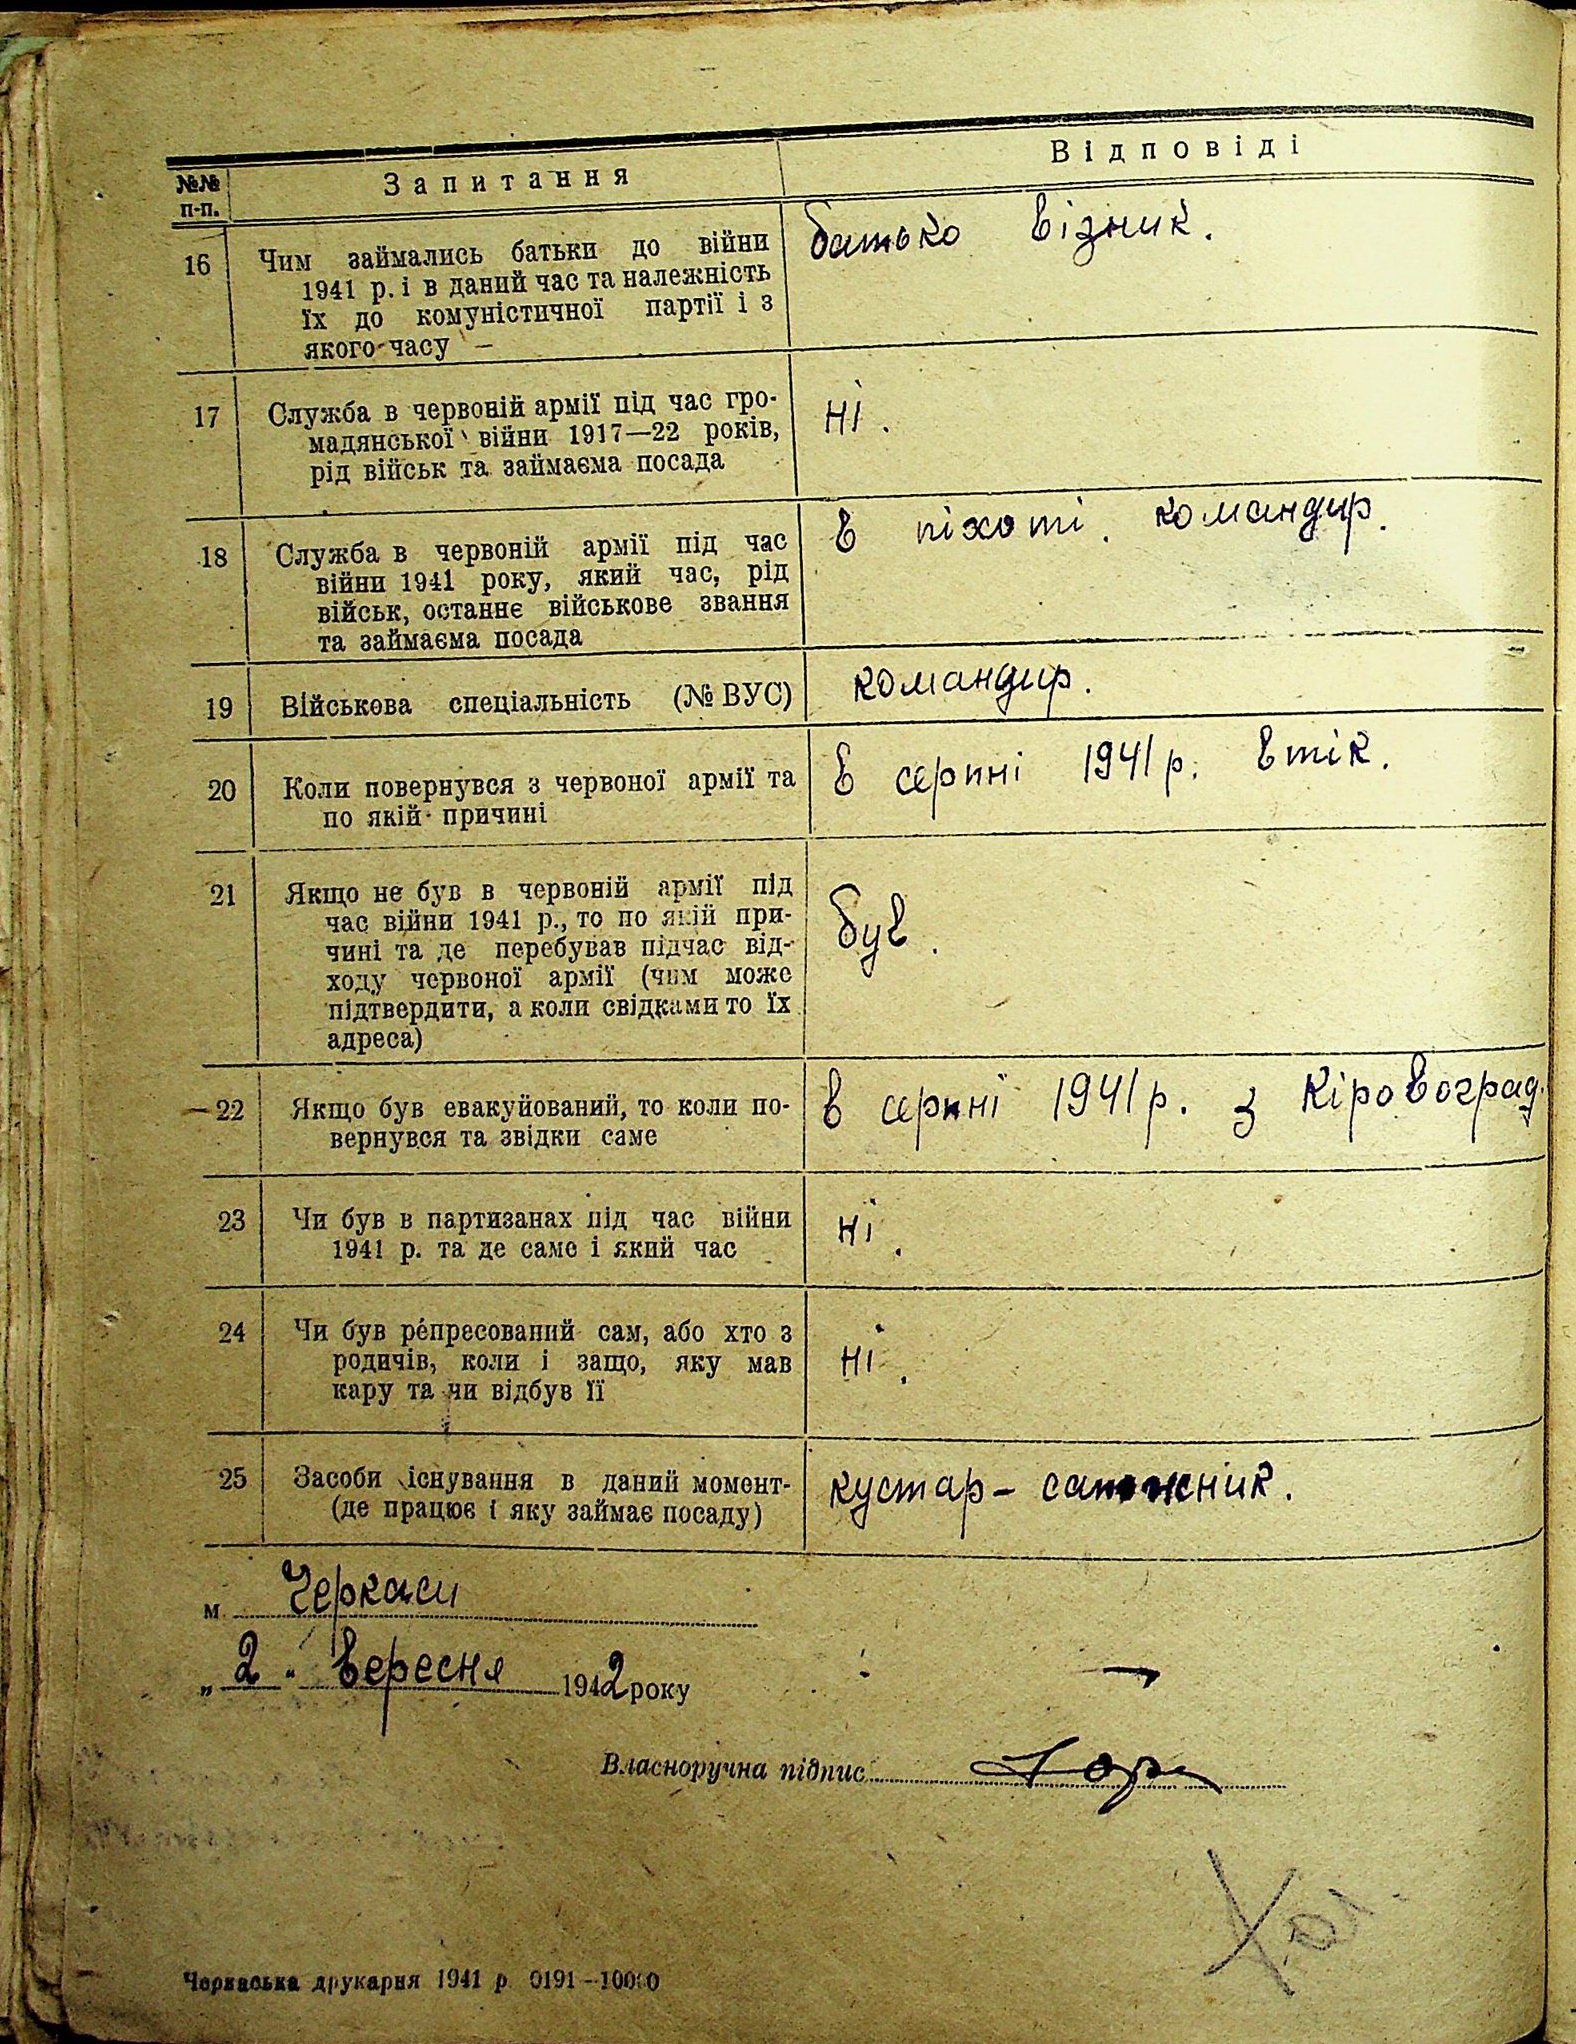 №№ п-п.
Запитання
Відповіді
16
Чим займались батьки до війни
1941 р. і в даний час та належність
їх до комуністичної партії і з
якого часу –
батько візник.
17
Служба в червоній армії під час гро-
мадянської війни 1917—22 років,
рід військ та займаєма посада
ні.
18
Служба в червоній армії під час
війни 1941 року, який час, рід
військ, останнє військове звання
та займаєма посада
в піхоті. командир.
19
Військова спеціальність (№ ВУС)
командир.
20
Коли повернувся з червоної армії та
по якій причині
в серпні 1941 р. втік.
21
Якщо не був в червоній армії під
час війни 1941 р., то по якій при-
чині та де перебував підчас від-
ходу червоної армії (чим може
підтвердити, а коли свідками то їх
адреса)
був.
22
Якщо був евакуйований, то коли по-
вернувся та звідки саме
в серпні 1941 р. з Кіровоград.
23
Чи був в партизанах під час війни
1941 р. та де саме і який час
ні.
24
Чи був репресований сам, або хто з
родичів, коли і защо, яку мав
кару та чи відбув її
ні.
25
Засоби існування в даний момент-
(де працює і яку займає посаду)
кустар-
м. Черкаси
„2" вересня 1942 року
Власноручна підпис
Черкаська друкарня 1941 р. 0191–10000